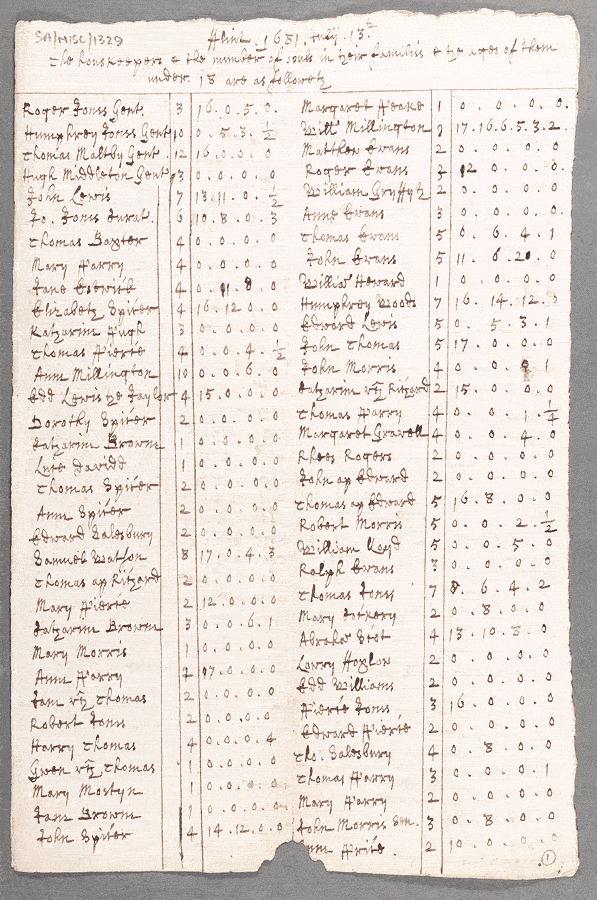 SA/MISC/1329
Flint 1681 July 13
The houskeepers & the number of souls in their families & the ages of them
under 18 are as followeth
Roger Jones Gent 3 16.0.5.0.
Humphrey Jones Gent 10 0.5.3.½
Thomas Maltby Gent. 12 16.0.0.0
Hugh Middleton Gent 3 0.0.0.0
John Lewis 7 13.11.0.½
Jo. Jones Jurat. 6 10.8.0.3
Thomas Baxter 4 0.0.0.0
Mary Parry 4 0.0.0.0
Jane 4 0.11.8.0
Elizabeth Spicer 4 16.12.0.0
Katharin Pugh 3 0.0.0.0
Thomas Pierce 4 0.0.4.½
Ann Millington 10 0.0.6.0
Edd Lewis ye Taylor 4 15.0.0.0
Dorothy Spicer 2 0.0.0.0
Catharin Browne 1 0.0.0.0
Luce David 1 0.0.0.0
Thomas Spicer 2 0.0.0.0
Ann Spicer 2 0.0.0.0
Edward Salesbury 2 0.0.0.0
Samuel Watson 8 17.0.4.3
Thomas ap Richard 2 0.0.0.0
Mary Pierce 2 12.0.0.0
Catharin Browne 3 0.0.6.1
Mary Morris 1 0.0.0.0
Ann Parry 2 17.0.0.0
Jane vch Thomas 2 0.0.0.0
Robert Jones 2 0.0.0.0
Harry Thomas 4 0.0.0.4
Gwen vch Thomas 1 0.0.0.0
Mary Mostyn 1 0.0.0.0
Jane Browne 1 0.0.0.0
John Spicer 4 14.12.0.0
Margaret Peake 1 0.0.0.0.
Will Millington 9 17.16.6.5.3.2.
Matthew Evans 2 0.0.0.0
Roger Evans 3 12 0.0.0.
William Gryffyth 2 0.0.0.0
Anne Evans 3 0.0.0.0.
Thomas Evans 5 0.6.4.1
John Evans 5 11.6.2.0
William Howard 1 0.0.0.0
Humphrey Woods 7 16.14.12.0
Edward Lewis 5 0.5.3.1
John Thomas 5 17.0.0.0
John Morris 4 0.0. 1
Catharin vch Richard 2 15.0.0.0
Thomas Parry 4 0.0.1.¼
Margaret Gravell 4 0.0.4.0
Rhees Rogers 2 0.0.0.0
John ap Edward 2 0.0.0.0
Thomas ap Edward 5 16.8.0.0
Robert Morris 5 0.0.2.½
William Loyd 5 0.0.5.0
Ralph Evans 3 0.0.0.0
Thomas Jones 7 8.6.4.2
Mary 2 0.8.0.0
Abraha Scot 4 13.10.8.0
Lowry 2 0.0.0.0
Edd Williams 2 0.0.0.0
Pierce Jones 3 16.0.0.0
Edward Pierce 2 0.0.0.0
Tho. Salesbury 4 0.8.0.0
Thomas Parry 3 0.0.0.1
Mary Parry 2 0.0.0.0
John Morris Sen. 3 0.8.0.0
Ann Price. 2 10.0.0.0
1